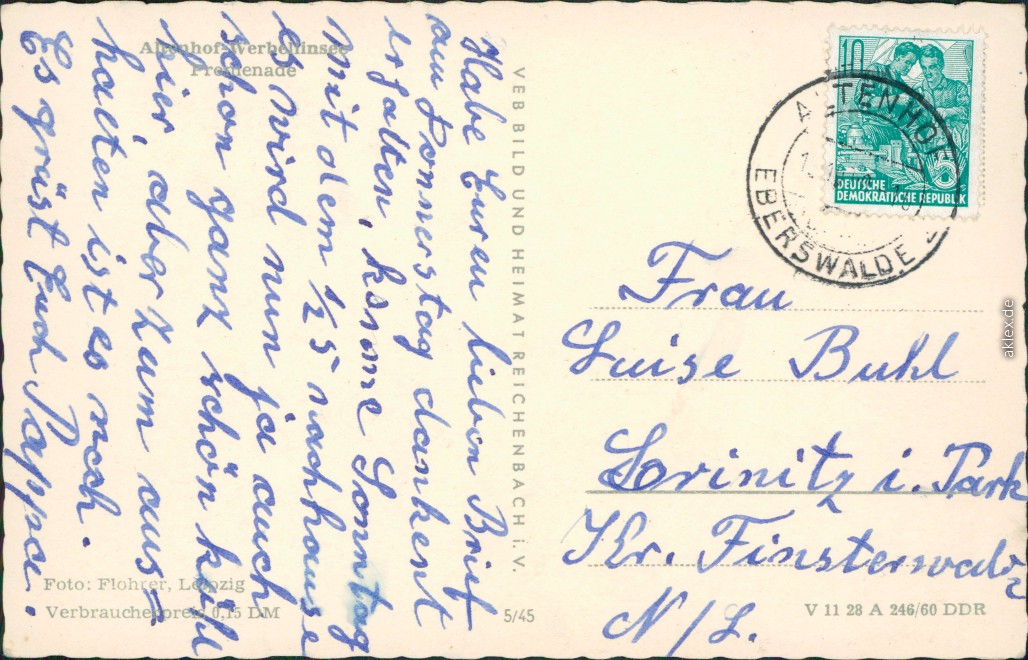 Altenhof-Werbellinsee
Promenade
Habe Euren lieben Brief
am Donnerstag dankent
erhalten, komme Sonntag
mit dem ½ 5 nachhause
es wird nun ja auch
schon ganz schön kühl
hier, aber zum aus=
halten ist es noch.
Es grüst Euch Pappa.
Foto: Flohrer, Leipzig
Verbraucherpreis 0,15 DM
VEB BILD UND HEIMAT REICHENBACH i. V.
5/45
10
DEUTSCHE
DEMOKRATISCHE REPUBLIK
ALTENHOF
EBERSWALDE 2
Frau
Luise Buhl
i. Park
Kr. Finsterwalde
N/L.
V 11 28 A 246/60 DDR
aklex.de